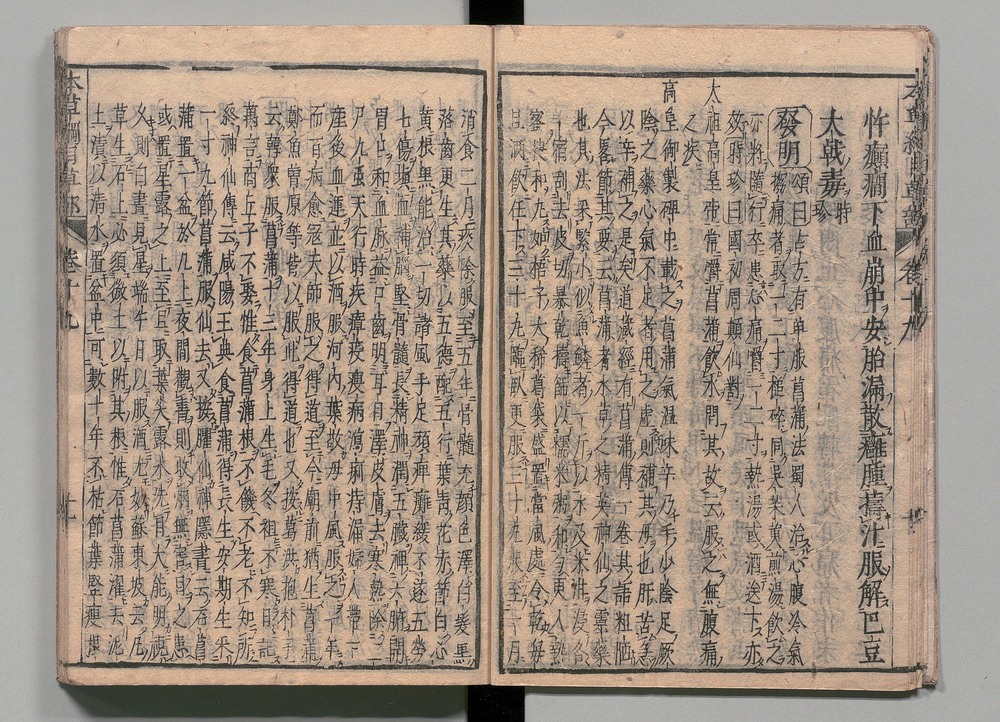 忤癲癇下血崩中安胎漏散癰腫擣汁服解巴豆
大戟毒時珍
發明頌曰古方有單服菖蒲法蜀人治心腹冷氣
搊痛者取一二寸槌碎同吳茱萸煎湯飲之
亦將隨行卒患心痛嚼一二寸熱湯或酒送下亦
效時珍曰國初周顛仙對
太祖高皇帝常嚼菖蒲飲水問其故云服之無腹痛
之疾
高皇御製碑中載之菖蒲氣温味辛乃手少陰足厥
陰之藥心氣不足者用之虛則補其母也肝苦急
以辛補之是矣道藏經有菖蒲傳一卷其語粗陋
今畧節其要云菖蒲者水草之精英神仙之靈藥
也其法采緊小似魚鱗者一斤以水及米泔浸各
一宿刮去皮切暴乾擣篩以糯米粥和匀更入熟
蜜搜和丸如梧子大稀葛袋盛置當風處令乾每
旦酒飲任下三十丸臨臥更服三十丸服至一月
消食二月痰除服至五年骨髓充顏色澤白髮黑
落齒更生其藥以五德配五行葉青花赤節白心
黄根黑能治一切諸風手足頑痺癱緩不遂五勞
七傷填血補腦堅骨髓長精神潤五臟裨六腑開
胃口和血脉益口齒明耳目澤皮膚去寒熱除三
尸九蟲天行時疾瘴疫瘦病瀉痢痔漏婦人帶下
産後血運並以酒服河内葉敬母中風服之一年
而百病愈寇天師服之得道至今廟前猶生菖蒲
鄭魚曾原等皆以服此得道也又按葛洪抱朴子
云韓衆服菖蒲十三年身上生毛冬袒不寒日記
萬言商丘子不娶惟食菖蒲根不饑不老不知所
終神仙傳云咸陽王典食菖蒲得長生安期生采
一寸九節菖蒲服仙去又按臞仙神隱書云石菖
蒲置一盆於几上夜間觀書則收烟無害目之患
或置星露之下至旦取葉尖露水洗目大能明視
久則白晝見星端午日以酒服尤妙蘇東坡云凡
草生石上必須微土以附其根惟石菖蒲濯去泥
土漬以清水置盆中可數十年不枯節葉堅瘦根
本草綱目草部 卷十九